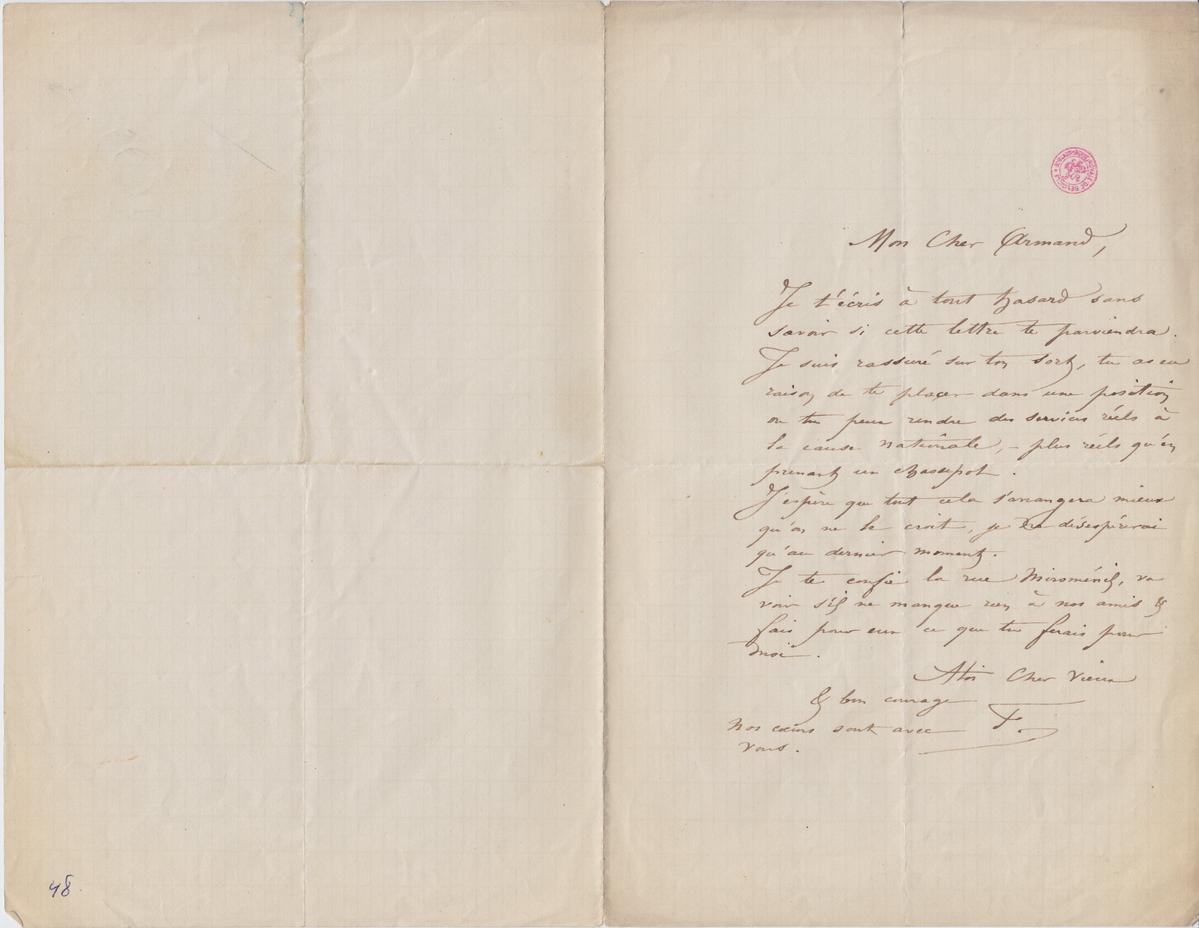 Mon Cher Armand,
Je t'écris à tout hasard sans
savoir si cette lettre te parviendra.
Je suis rassuré sur ton sort, tu as eu
raison de te placer dans une position
ou tu peux rendre des services réels à
la cause nationale, – plus réels qu'en
prenant un chassepot.
J'espère que tout cela s'arrangera mieux
qu'on ne le croit, je ne désespérerai
qu'au dernier moment.
Je te confie la rue Miroménil, va
voir s'il ne manque rien à nos amis &
fais pour eux ce que tu ferais pour
moi.
A toi Cher Vieux
& bon courage
F.
Nos cœurs sont avec
vous.
48.